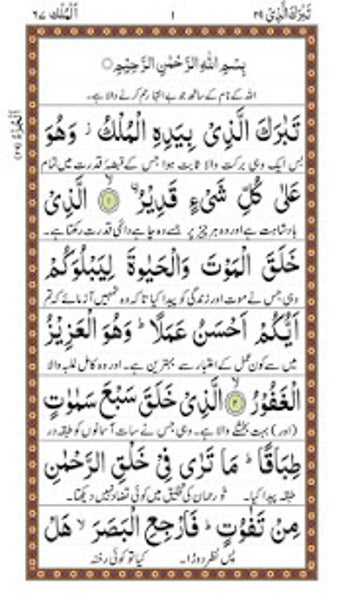 تَبٰرَكَ الَّذِیْ ۲۹ ۱ اَلْمُلْک ۶۷
اَلْجُزْءُ (۲۹)
بِسْمِ اللّٰهِ الرَّحْمٰنِ الرَّحِیْمِ
اللہ کے نام کے ساتھ جو بے انتہا رحم کرنے والا ہے۔
تَبٰرَكَ الَّذِیْ بِیَدِهِ الْمُلْكُ ز وَهُوَ
بس ایک وہی برکت والا ثابت ہوا جس کے قبضۂ قدرت میں تمام
عَلٰی كُلِّ شَیْءٍ قَدِیْرُ ۙ ۱ الَّذِیْ
بادشاہت ہے اور وہ ہر چیز پر جسے وہ چاہے دائمی قدرت رکھتا ہے۔
خَلَقَ الْمَوْتَ وَالْحَیٰوةَ لِیَبْلُوَكُمْ
وہی جس نے موت اور زندگی کو پیدا کیا تاکہ وہ تمہیں آزمائے کہ تم
اَیُّكُمْ اَحْسَنُ عَمَلًا ؕ وَهُوَ الْعَزِیْزُ
میں سے کون عمل کے اعتبار سے بہترین ہے۔ اور وہ کامل غلبہ والا
الْغَفُوْرُ ۙ ۲ الَّذِیْ خَلَقَ سَبْعَ سَمٰوٰتٍ
(اور) بہت بخشنے والا ہے۔ وہی جس نے سات آسمانوں کو طبقہ در
طِبَاقًا ؕ مَا تَرٰی فِیْ خَلْقِ الرَّحْمٰنِ
طبقہ پیدا کیا۔ تُو رحمان کی تخلیق میں کوئی تضاد نہیں دیکھتا۔
مِنْ تَفٰوُتٍ ؕ فَارْجِعِ الْبَصَرَ ۙ هَلْ
پس نظر دوڑا۔ کیا تو کوئی رخنہ